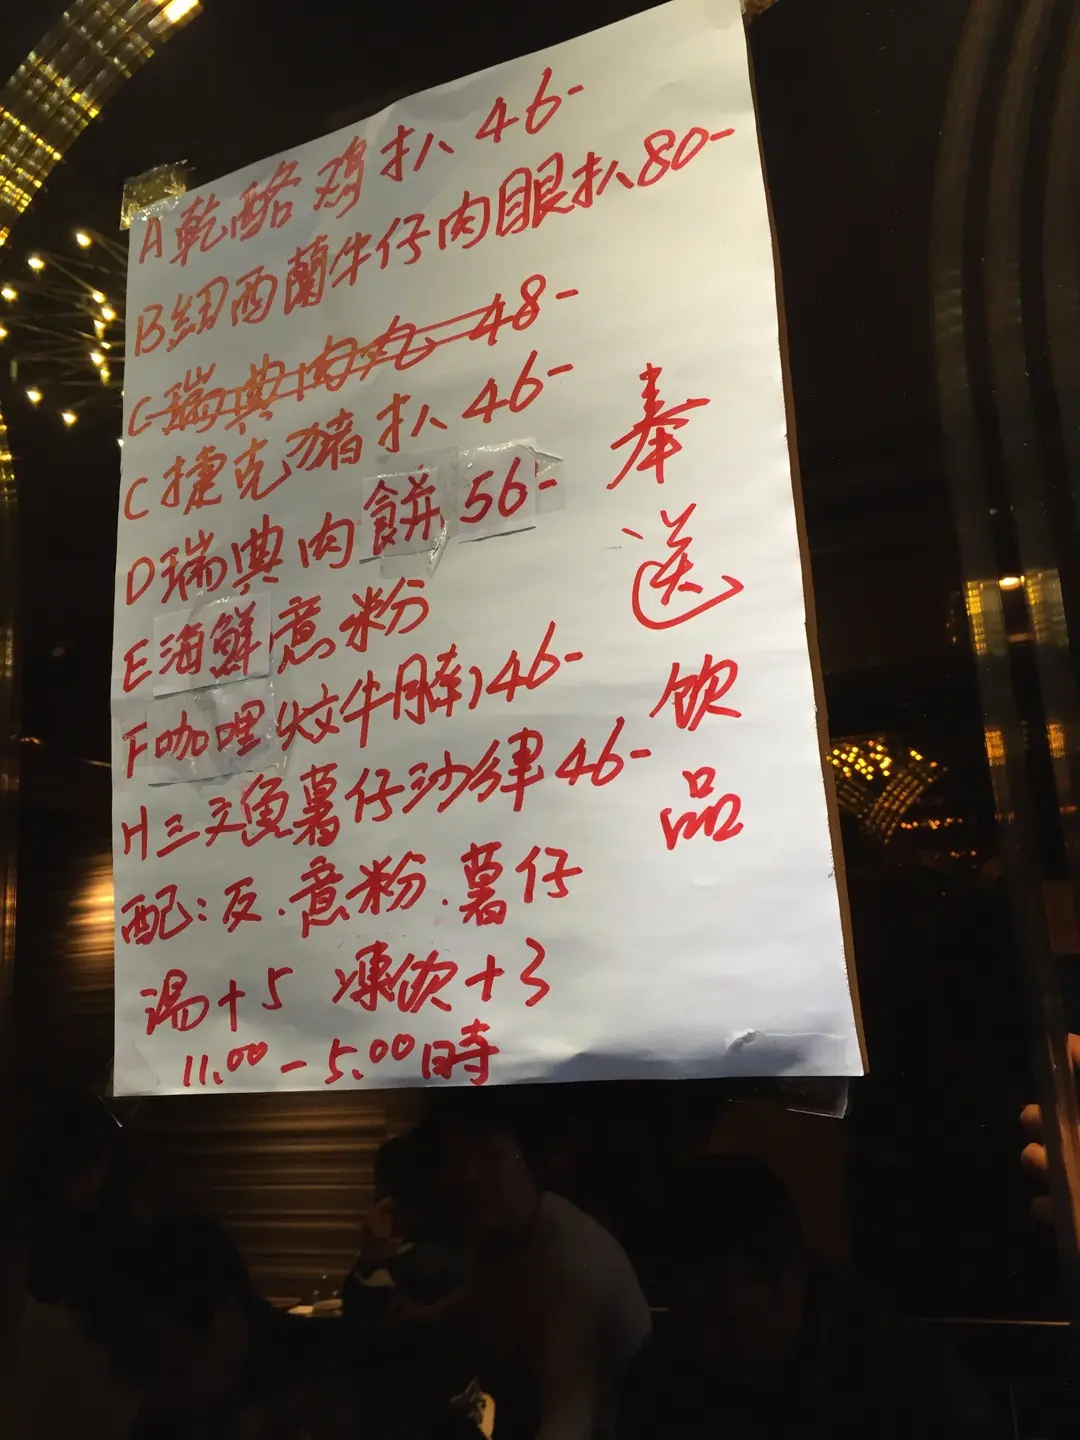 A乾酪鸡扒46-
B紐西蘭牛仔肉眼扒80-
C瑞典肉丸48-
C捷克豬扒46-
D瑞典肉餅56-
E海鮮意粉
F咖哩炆牛脷46-
H三文魚薯仔沙律46-
配:反.意粉.薯仔
湯+5 凍飲+3
11.00-5.00時
奉送飲品